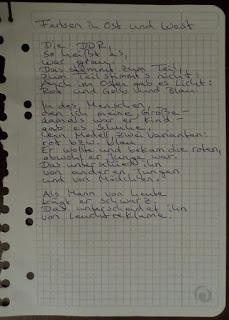 Farben in Ost und West
Die DDR,
so heißt es,
war grau.
Das stimmt zum Teil,
zum Teil stimmt's nicht:
Auch im Osten gab es Licht:
Rot und Gelb und Blau.
In des Menschen,
den ich meine, Größe –
damals war er Kind –
gab es Schuhe:
Dein Modell, zwei Varianten:
rot bzw. blau.
Er wollte und bekam die roten,
obwohl er Junge war.
Das unterschied ihn
von anderen Jungen
und von Mädchen.
Als Mann von heute
trägt er schwarz.
Das unterscheidet ihn
von Leuchtreklame.